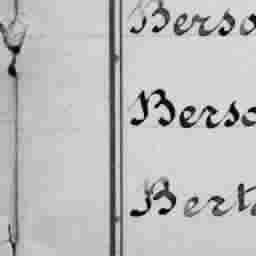 Berso
Berso
Berta